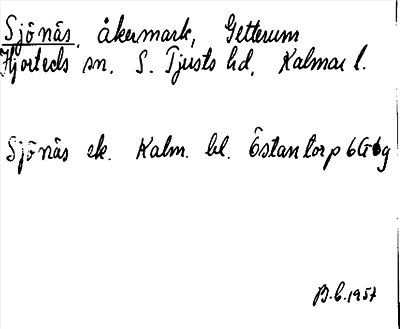 Sjönäs, åkermark, Getterum
Hjorteds sn. S. Tjusts hd. Kalmar l.
Sjönäs ek. Kalm. bl. Östantorp 6G6g
B.C. 1957